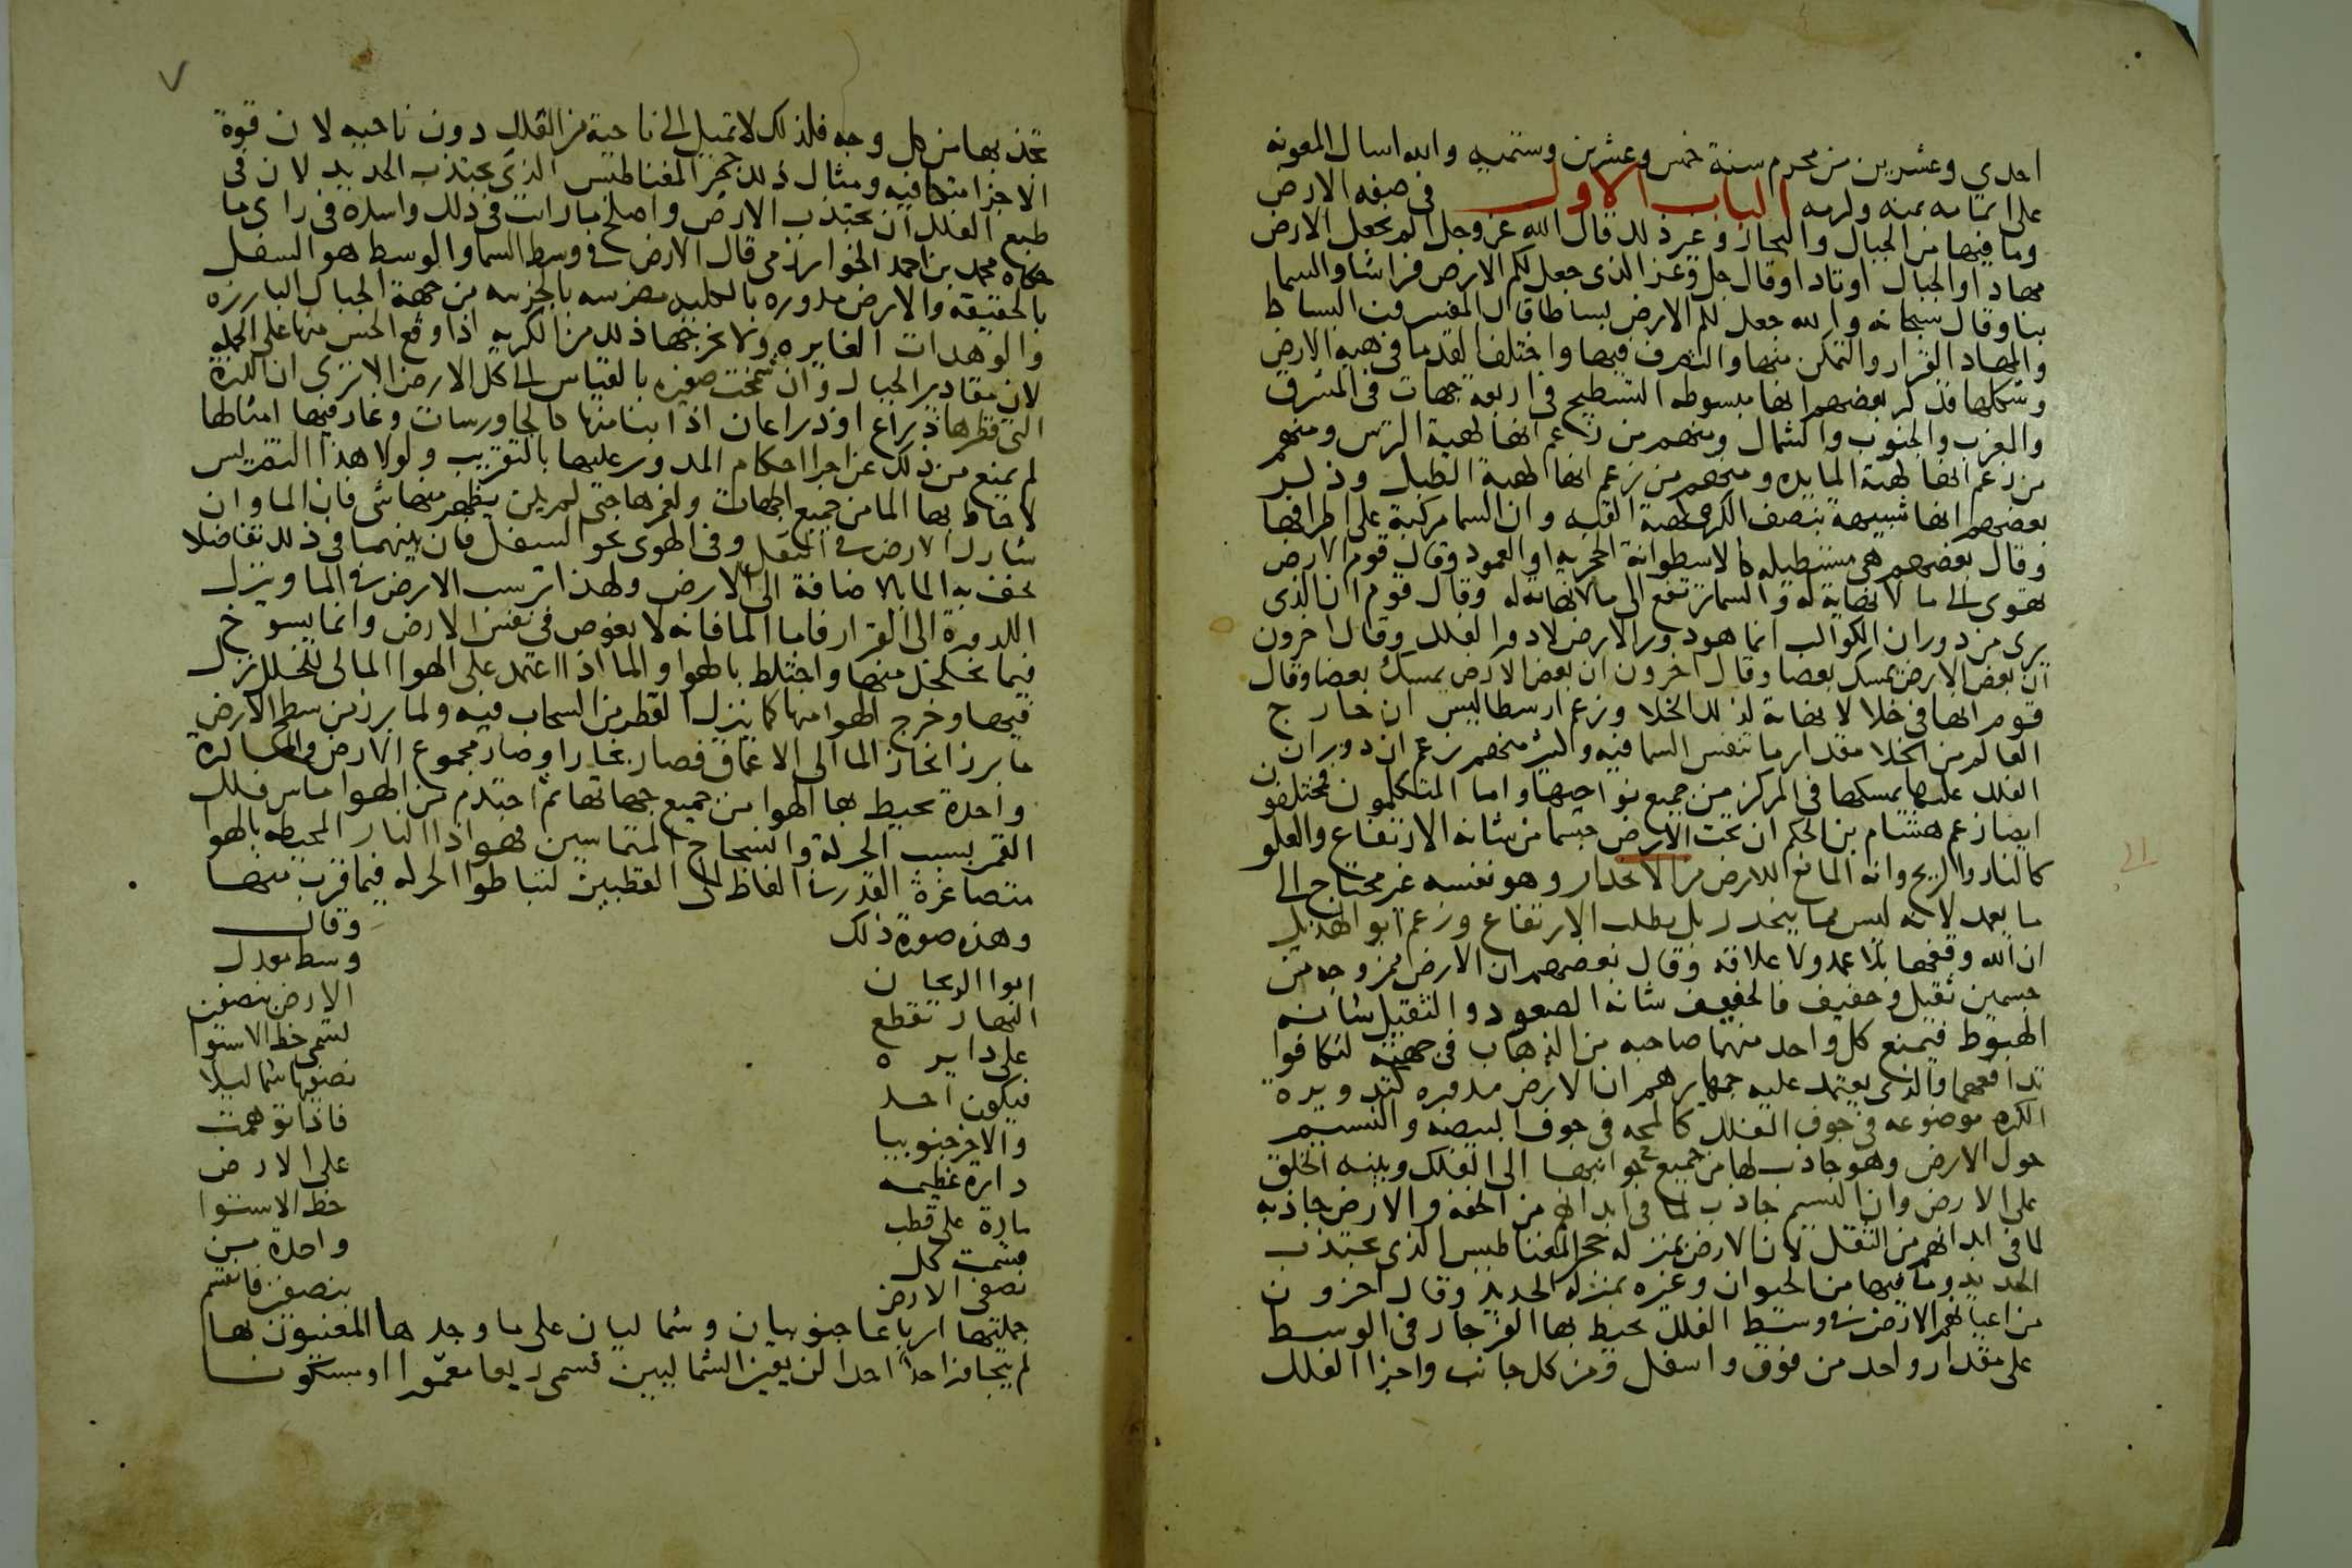 احدي وعشرين من محرم سنة خمس وعشرين وستميه والله اسال المعونه
على اتمامه بمنه وكرمه الباب الاول في صفه الارض
وما فيها من الجبال والبحار وغير ذلك قال الله عز وجل الم نجعل الارض
مهادا والجبال اوتادا وقال جل وعز الذي جعل لكم الارض فراشا والسما
بنا وقال سبحانه والله جعل لكم الارض بساطا قال المفسرون البساط
والمهاد القرار والتمكن منها والتصرف فيها واختلف القدما في هية الارض
وشكلها فذكر بعضهم انها مبسوطه التسطيح في اربعة جهات في المشرق
والمغرب والجنوب والشمال ومنهم من زعم انها لهية الترس ومنهم
من زعم انها لهية المايده ومنهم من زعم انها لهية الطبل وذكر
بعضهم انها شبيهة بنصف الكره لهية القبه وان السما مركبة على اطرافها
وقال بعضهم هي مستطيله كالاسطوانة الحجريه او العمود وقال قوم الارض
تهوى الى ما لا نهاية له والسما ترتفع الى ما لا نهاية له وقال قوم ان الذي
يرى من دوران الكواكب انما هو دور الارض لا دور الفلك وقال اخرون
ان بعض الارض يمسك بعضا وقال اخرون ان بعض الارض يمسك بعضا وقال
قوم انها في خلا لا نهاية لذلك الخلا وزعم ارسطاليس ان خارج
العالم من الخلا مقدار ما تتنفس السما فيه وكثير منهم زعم ان دوران
الفلك عليها يمسكها في المركز من جميع نواحيها واما المتكلمون فمختلفون
ايضا زعم هشام بن الحكم ان تحت الارض جسما من شانه الارتفاع والعلو
كالنار والريح وانه المانع للارض من الانحدار وهو نفسه غير محتاج الى
ما يعمده لانه ليس مما ينحدر بل يطلب الارتفاع وزعم ابو الهذيل
ان الله وقفها بلا عمد ولا علاقه وقال بعضهم ان الارض ممزوجه من
جسمين ثقيل وخفيف فالخفيف شانه الصعود والثقيل شانه
الهبوط فيمنع كل واحد منهما صاحبه من الذهاب في جهته لتكافوا
تدافعهما والذي يعتمد عليه جماهيرهم ان الارض مدوره كتدويره
الكره موضوعه في جوف الفلك كالمحه في جوف البيضه والنسيم
حول الارض وهو جاذب لها من جميع جوانبها الى الفلك وبنيه الخلق
على الارض وان النسيم جاذب لما في ابدانهم من الخفه والارض جاذبه
لما في ابدانهم من الثقل لان الارض بمنزله حجر المغناطيس الذي يجتذب
الحديد وما فيها من الحيوان وغيره بمنزله الحديد وقال اخرون
من اعيانهم الارض في وسط الفلك يحيط بها الفرجار في الوسط
على مقدار واحد من فوق واسفل ومن كل جانب واجزا الفلك
تجذبها من كل وجه فلذلك لا تميل الى ناحية من الفلك دون ناحيه لان قوة
الاجزا متكافيه ومثال ذلك حجر المغناطيس الذي يجتذب الحديد لان في
طبع الفلك ان يجتذب الارض واصلح ما رايت في ذلك واسده في راى ما
حكاه محمد بن احمد الخوارزمي قال الارض في وسط السما والوسط هو السفل
بالحقيقه والارض مدوره بالكليه مضرسه بالجزييه من جهة الجبال البارزه
والوهدات الغايره ولا يخرجها ذلك من الكريه اذا وقع الحس منها على الجمله
لان مقادير الجبال وان شمخت صغيره بالقياس الى كل الارض الا ترى ان الكرة
التي قطرها ذراع او ذراعان اذا نتا منها كالجاورسات وغار فيها امثالها
لم يمنع من ذلك عن اجرا احكام المدور عليها بالتقريب ولولا هذا التضريس
لاحاط بها الما من جميع الجهات ولغمرها حتى لم يكن يظهر منها شي فان الما وان
شارك الارض في الثقل وفي الهوى نحو السفل فان بينهما في ذلك تفاضلا
يخف به الما بالاضافة الى الارض ولهذا ترسب الارض في الما وينزل
الكدورة الى القرار فاما الما فانه لا يغوص في نفس الارض وانما يسوخ
فيما تخلخل منها واختلط بالهوا والما اذا اعتمد على الهوا المالى للتخلل نزل
فيها وخرج الهوا منها كما ينزل القطر من السحاب فيه ولما برز من سطح الارض
ما برز انحاز الما الى الاعماق فصار بحارا وصار مجموع الارض والما كرة
واحدة يحيط بها الهوا من جميع جهاتها ثم احتدم من الهوا ما مس فلك
القمر بسبب الحركة وانسحاج المتماسين فهو اذا النار المحيطه بالهوا
متصاغرة القدر في الغلظ الى القطبين لتباطوا الحركه فيما قرب منها
وهذه صورة ذلك وقال
ابوا الريحان وسط معدل
النهار تقطع الارض بنصفين
على دايره تسمى خط الاستوا
فيكون احد نصفيها شماليلا
والاخر جنوبيا فاذا توهمت
دايرة عظيمه على الارض
مارة على قطب خط الاستوا
قسمت كل واحدة من
نصفى الارض بنصفين فانقسم
جملتها ارباعا جنوبيان وشماليان على ما وجدها المعنيون بها
لم يتجاوز احدا احد الربعين الشماليين تسمى ربعا معمورا او مسكونا